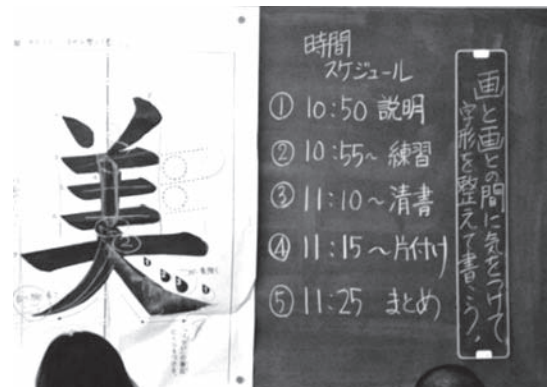 美
時間
スケジュール
① 10:50 説明
② 10:55~ 練習
③ 11:10~清書
④ 11:15~片付け
⑤ 11:25 まとめ
画と画との間に気をつけて
字形を整えて書こう!